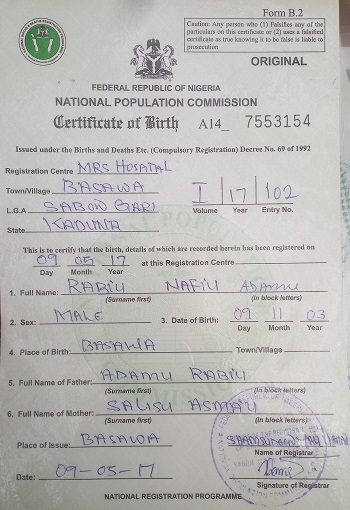 Form B.2
Caution: Any person who (1) Falsifies any of the
particulars on this certificate or (2) uses a falsified
certificate as true knowing it to be false is liable to
prosecution
ORIGINAL
FEDERAL REPUBLIC OF NIGERIA
NATIONAL POPULATION COMMISSION
Certificate of Birth A14_ 7553154
Issued under the Births and Deaths Etc. (Compulsory Registration) Decree No. 69 of 1992
Registration Centre MRS HOSPITAL
Town/Village BASAWA
I 17 102
L.G.A SABON GARI
Volume Year Entry No.
State KADUNA
This is to certify that the birth, details of which are recorded herein has been registered on
09 05 17 at this Registration Centre
Day Month Year
1. Full Name: RABIU NAFIU ADAMU
(Surname first) (In block letters)
2. Sex: MALE 3. Date of Birth: 09 11 03
Day Month Year
4. Place of Birth: BASAWA Town/Village
5. Full Name of Father: ADAMU RABIU
(Surname first) (In block letters)
6. Full Name of Mother: SALISU ASMA'U
(Surname first) (In block letters)
Place of Issue: BASAWA
Name of Registrar
Date: 09-05-17
Signature of Registrar
NATIONAL REGISTRATION PROGRAMME